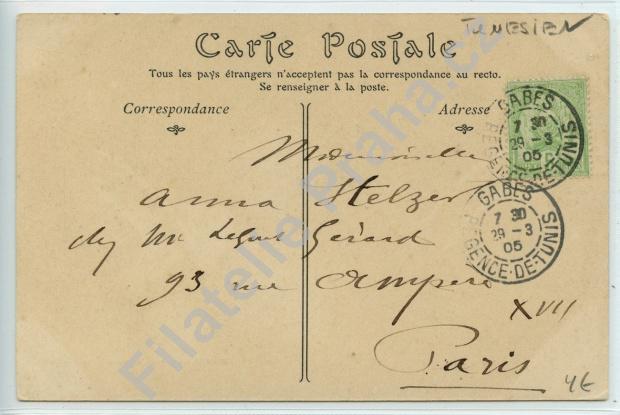 TUNESIEN
Carte Postale
Tous les pays étrangers n'acceptent pas la correspondance au recto.
Se renseigner à la poste.
Correspondance
Adresse
GABES
7 30
29 - 3
05
RÉGENCE-DE-TUNIS
GABES
7 30
29 - 3
05
RÉGENCE-DE-TUNIS
Mademoiselle
Anna Stelzer
chez Mr Gérard
93 rue Ampère
XVII
Paris
4€
Filatelie Praha.cz